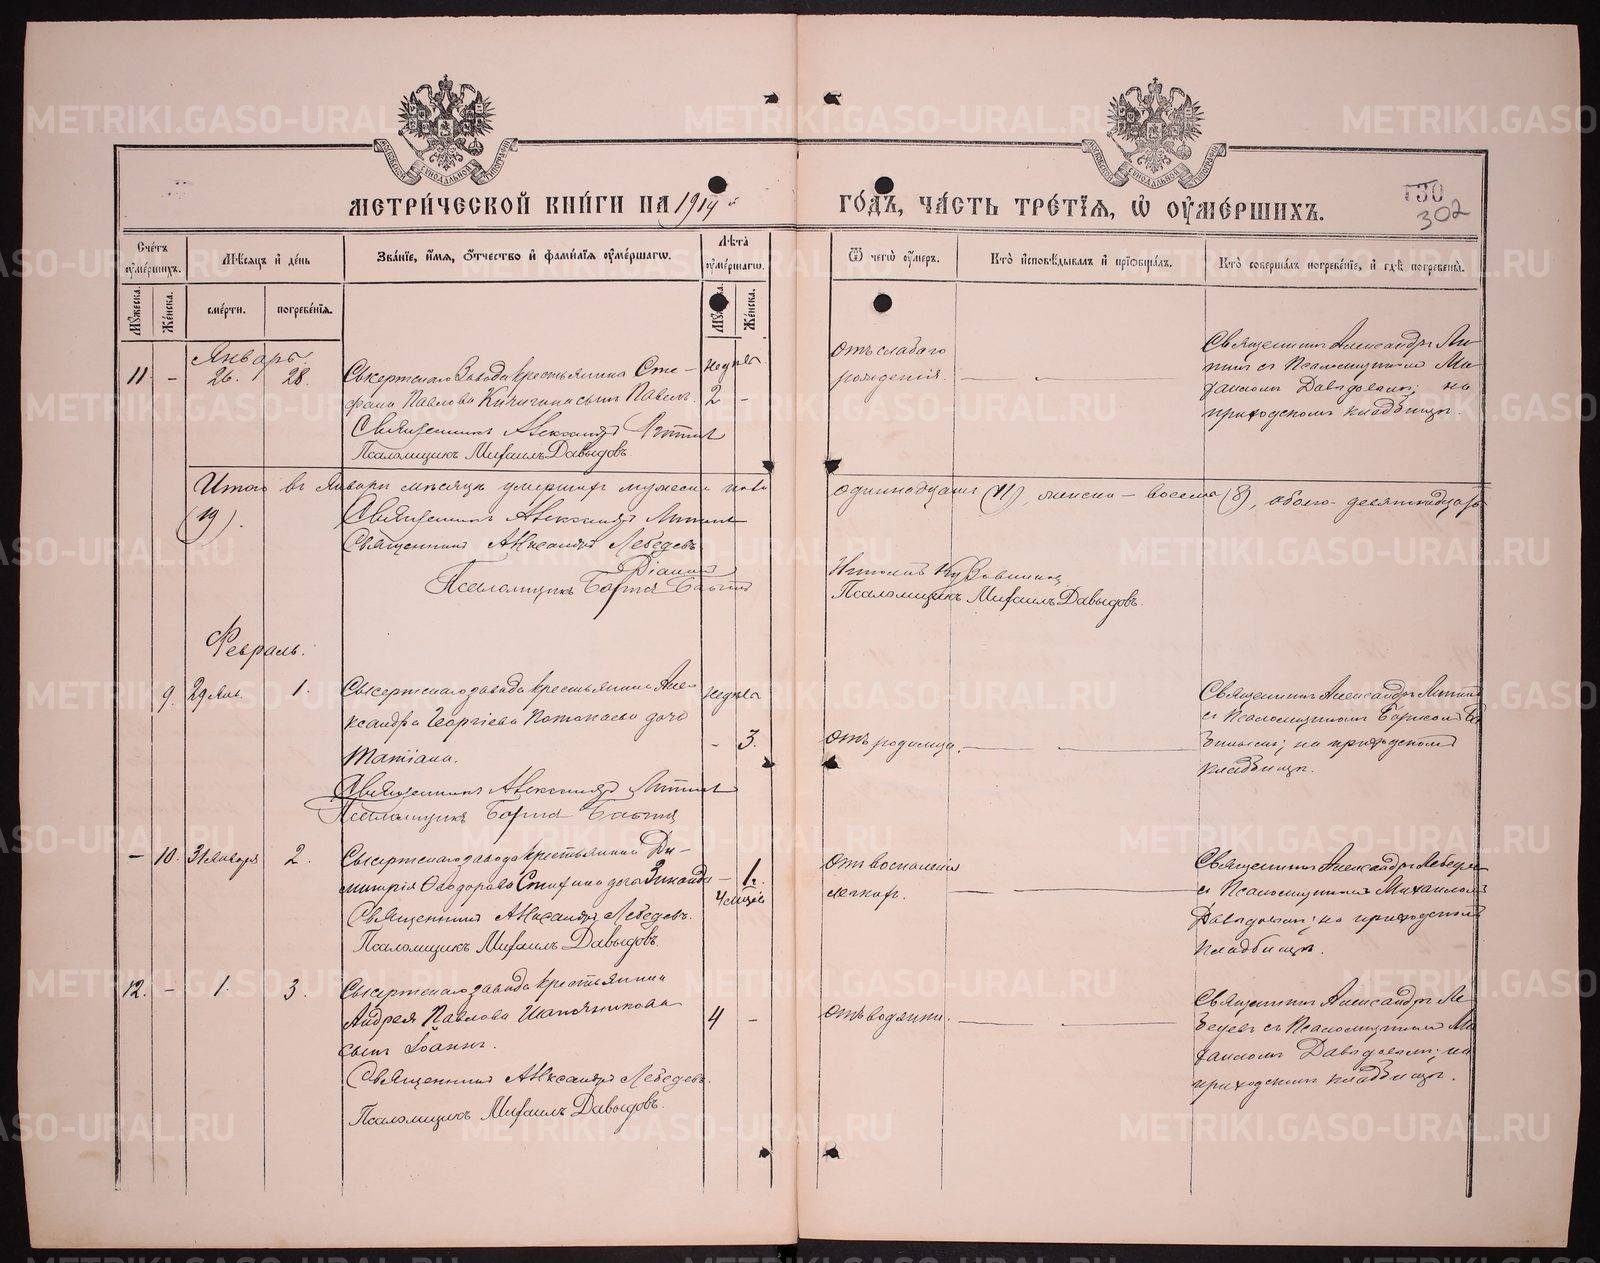 МЕТРИ́ЧЕСКОЙ КНИ́ГИ НА 1914 й
ГО́ДЪ, ЧА́СТЬ ТРЕ́ТІЯ, Ѡ ОУМЕ́РШИХЪ.
130
302
Сче́тъ оуме́ршихъ.
Мѣ́сяцъ и де́нь
Зва́нїе, и́мя, о́тчество и фами́лїя оуме́ршагѡ.
Лѣ́та оуме́ршагѡ.
Ѿ чегѡ̀ оу́меръ.
Кто̀ и҆сповѣ́дывалъ и прїобща́лъ.
Кто̀ соверша́лъ погребе́нїе, и гдѣ̀ погребены̀.
Му́жеска.
Же́нска.
сме́рти.
погребе́нїя.
Же́нска.
Январь.
11 - 26. 28.
Сысертскаго завода крестьянина Сте-
фана Павлова Кичигина сынъ Павелъ.
недѣль
2 -
Священникъ Александръ
Псаломщикъ Михаилъ Давыдовъ.
Отъ слабаго
рожденія.
Священникъ Александръ
съ Псаломщикомъ Ми-
хаиломъ Давыдовымъ; на
приходскомъ кладбищѣ.
Итого въ Январѣ мѣсяцѣ умерших мужеска пола
одиннадцать (11), женска - восемь (8), обоего - девятнадцать
(19).
Священникъ Александръ
Священникъ Александръ Лебедевъ
Діаконъ
Псаломщикъ Борисъ
Псаломщикъ Михаилъ Давыдовъ.
Февраль.
9. 29 Янв. 1.
Сысертскаго завода крестьянина Але-
ксандра Георгіева Потопаева дочь
Татіана.
недѣль
- 3.
Священникъ Александръ
Псаломщикъ Борисъ
Отъ родимца.
Священникъ Александръ
съ Псаломщикомъ Борисомъ
на приходскомъ
кладбищѣ.
- 10. 31 Января 2.
Сысертскаго завода крестьянина Ди-
митрія Ѳеодорова дочь Зинаида
- 1.
4 мѣсяц.
Священникъ Александръ Лебедевъ.
Псаломщикъ Михаилъ Давыдовъ.
Отъ воспаленія
легкихъ.
Священникъ Александръ Лебедевъ
съ Псаломщикомъ Михаиломъ
Давыдовымъ; на приходскомъ
кладбищѣ.
12. - 1. 3.
Сысертскаго завода крестьянина
Андрея Павлова Шапошникова
сынъ Іоаннъ.
4 -
Священникъ Александръ Лебедевъ.
Псаломщикъ Михаилъ Давыдовъ.
Отъ водянки.
Священникъ Александръ Ле-
бедевъ съ Псаломщикомъ Ми-
хаиломъ Давыдовымъ; на
приходскомъ кладбищѣ.
METRIKI.GASO-URAL.RU